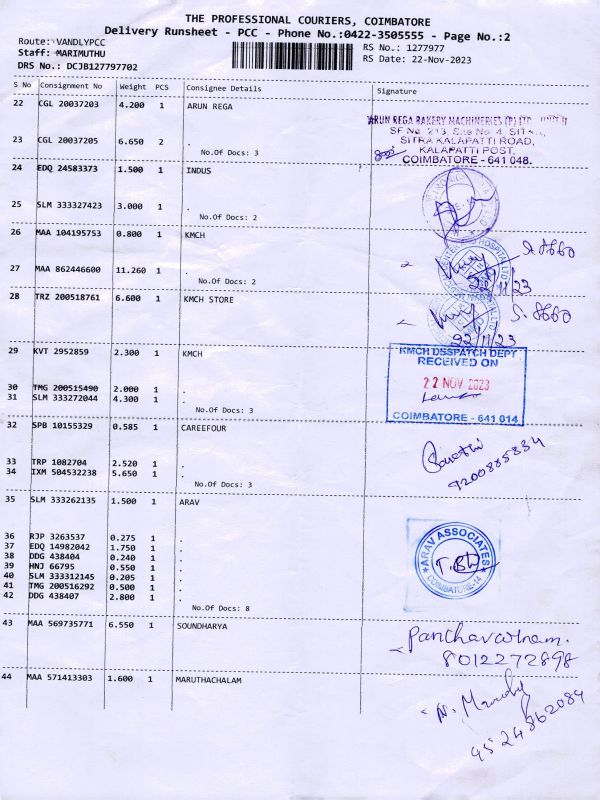 THE PROFESSIONAL COURIERS, COIMBATORE
Delivery Runsheet - PCC - Phone No.:0422-3505555 - Page No.:2
Route: VANDLYPCC
RS No.: 1277977
Staff: MARIMUTHU
RS Date: 22-Nov-2023
DRS No.: DCJB127797702
S No Consignment No Weight PCS Consignee Details Signature
22 CGL 20037203 4.200 1 ARUN REGA
ARUN REGA BAKERY MACHINERIES (P) LTD
23 CGL 20037205 6.650 2 .
SITRA KALAPATTI ROAD,
KALAPATTI POST,
COIMBATORE - 641 048.
No.Of Docs: 3
24 EDQ 24583373 1.500 1 INDUS
25 SLM 333327423 3.000 1 .
No.Of Docs: 2
26 MAA 104195753 0.800 1 KMCH
27 MAA 862446600 11.260 1 .
22/11/23
No.Of Docs: 2
28 TRZ 200518761 6.600 1 KMCH STORE
22/11/23
29 KVT 2952859 2.300 1 KMCH
KMCH DESPATCH DEPT
RECEIVED ON
30 TMG 200515490 2.000 1 .
22 NOV 2023
31 SLM 333272044 4.300 1 .
No.Of Docs: 3
COIMBATORE - 641 014
32 SPB 10155329 0.585 1 CAREEFOUR
33 TRP 1082704 2.520 1 .
34 IXM 504532238 5.650 1 .
9200885834
No.Of Docs: 3
35 SLM 333262135 1.500 1 ARAV
36 RJP 3263537 0.275 1 .
37 EDQ 14982042 1.750 1 .
38 DDG 438404 0.240 1 .
39 HNJ 66795 0.550 1 .
40 SLM 333312145 0.205 1 .
41 TMG 200516292 0.500 1 .
42 DDG 438407 2.800 1 .
ARAV ASSOCIATES
COIMBATORE-14
No.Of Docs: 8
43 MAA 569735771 6.550 1 SOUNDHARYA
Panchavatnam.
8012272898
44 MAA 571413303 1.600 1 MARUTHACHALAM
9524862084